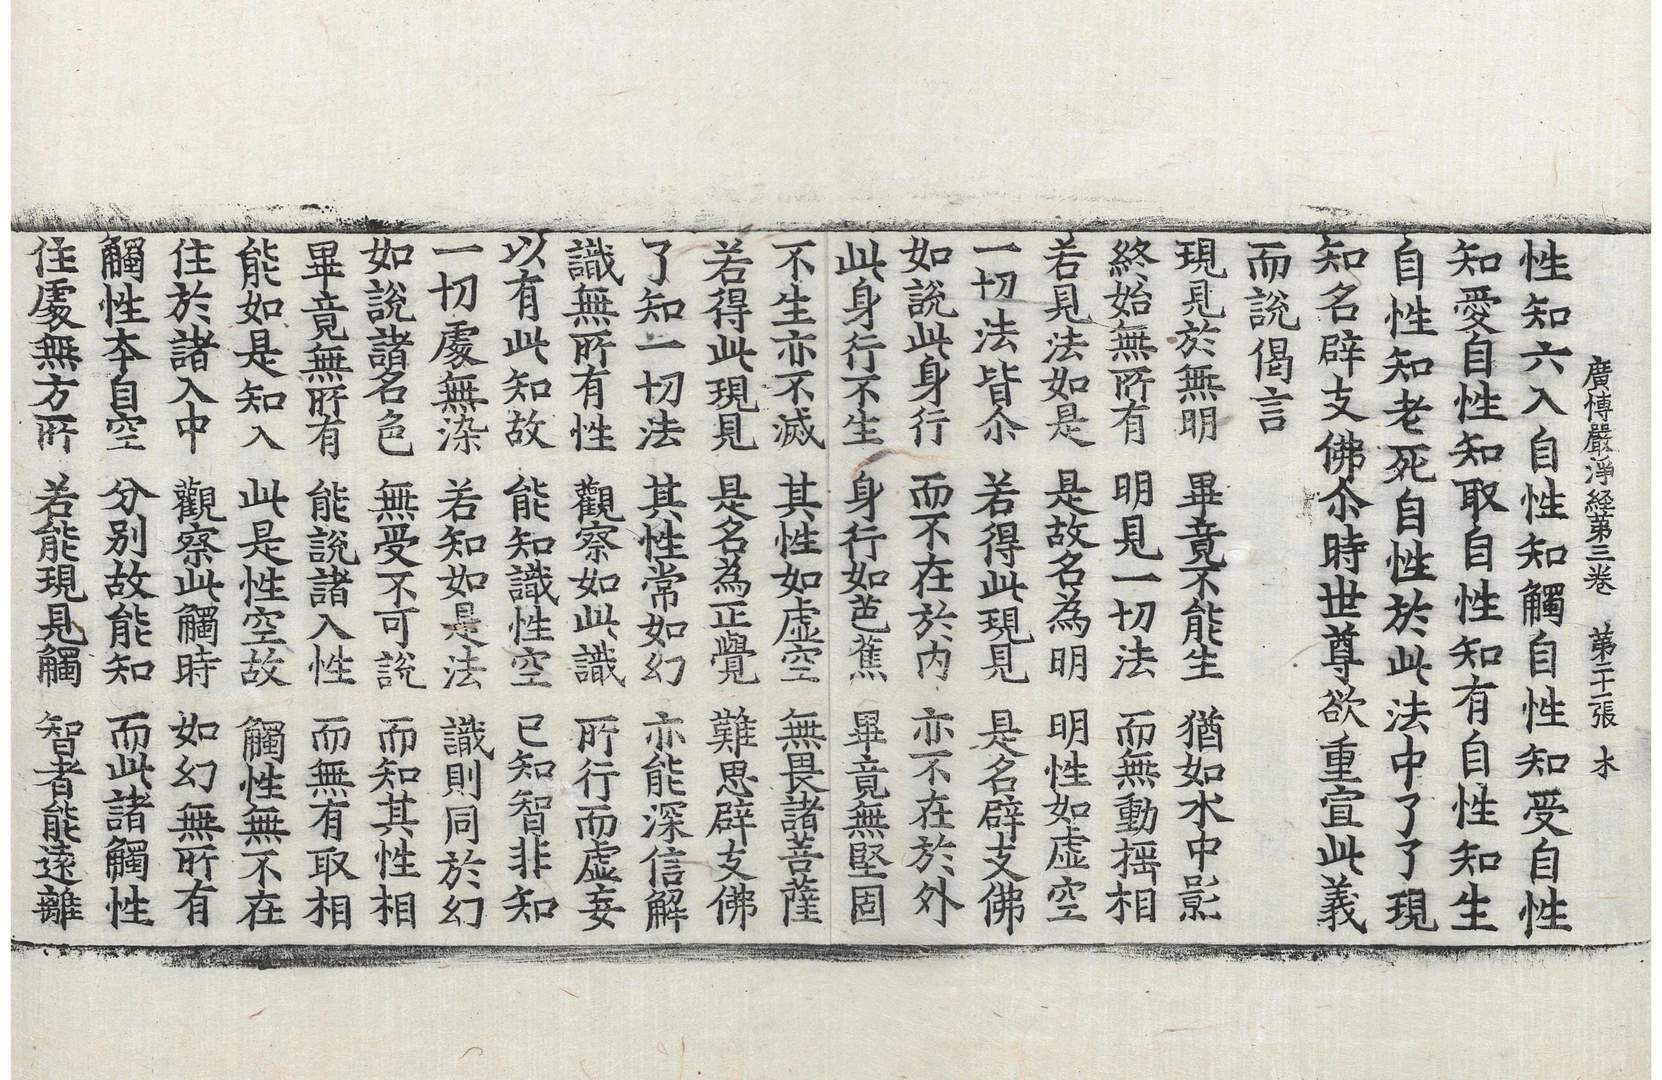 廣博嚴淨經第三卷 第二十張 木
性知六入自性知觸自性知受自性
知愛自性知取自性知有自性知生
自性知老死自性於此法中了了現
知名辟支佛尒時世尊欲重宣此義
而說偈言
現見於無明 畢竟不能生 猶如水中影
終始無所有 明見一切法 而無動揺相
若見法如是 是故名為明 明性如虛空
一切法皆尒 若得此現見 是名辟支佛
如說此身行 而不在於內 亦不在於外
此身行不生 身行如芭蕉 畢竟無堅固
不生亦不滅 其性如虛空 無畏諸菩薩
若得此現見 是名為正覺 難思辟支佛
了知一切法 其性常如幻 亦能深信解
識無所有性 觀察如此識 所行而虛妄
以有此知故 能知識性空 已知智非知
一切處無染 若知如是法 識則同於幻
如說諸名色 無受不可說 而知其性相
畢竟無所有 能說諸入性 而無有取相
能如是知入 此是性空故 觸性無不在
住於諸入中 觀察此觸時 如幻無所有
觸性本自空 分別故能知 而此諸觸性
住處無方所 若能現見觸 智者能遠離